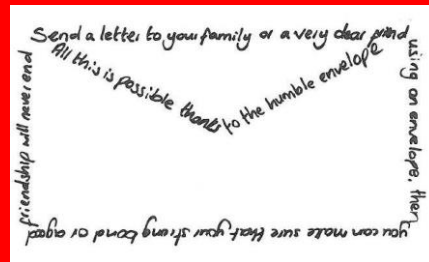 Send a letter to your family or a very dear friend
using an envelope, then
you can make sure that your strong bond or a good
friendship will never end
All this is possible thanks
to the humble envelope